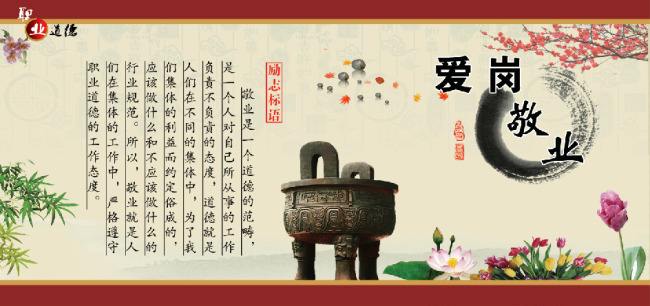 职业道德
爱岗敬业
励志标语
敬业是一个道德的范畴，
是一个人对自己所从事的工作
负责不负责的态度，道德就是
人们在不同的集体中，为了我
们集体的利益而约定俗成的，
应该做什么和不应该做什么的
行业规范。所以，敬业就是人
们在集体的工作中，严格遵守
职业道德的工作态度。